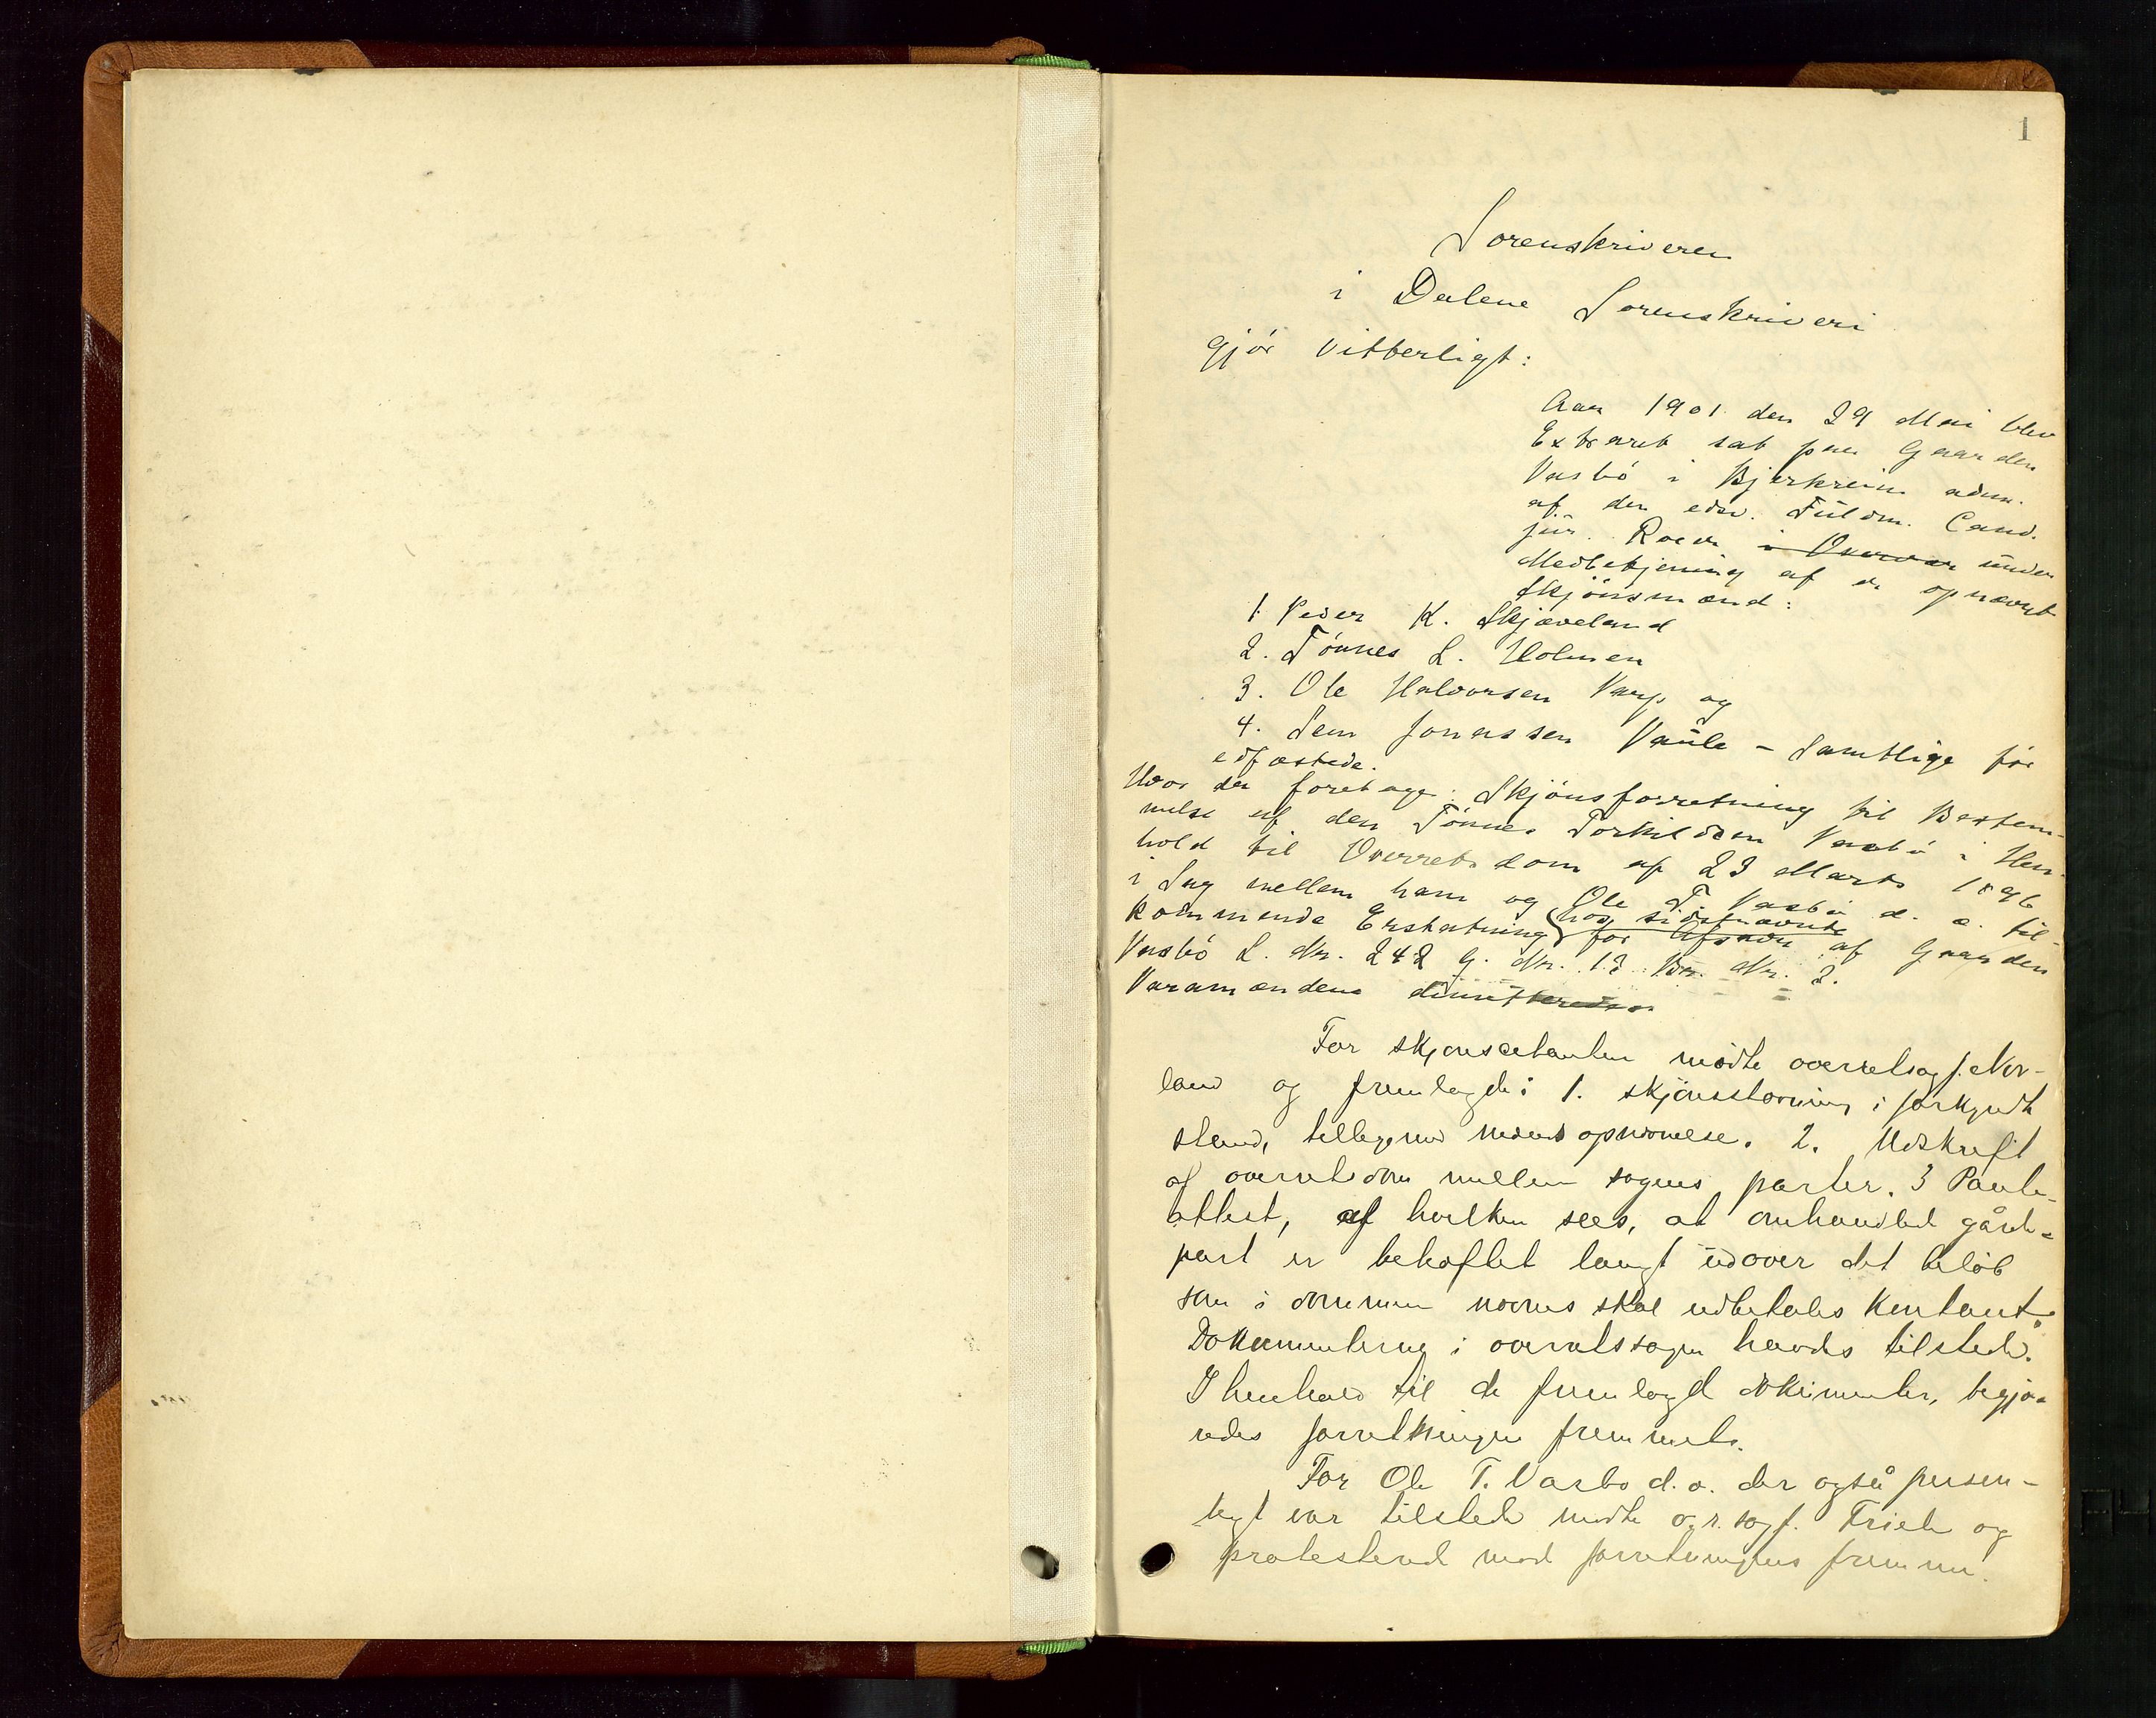 1
Sorenskriveren
i Dalene Sorenskriveri
gjør vitterligt:
Aar 1901 den 29 Mai blev
Extraret sat paa Gaarden
Vasbø i Bjerkreim adm.
af den edsv. Fuldm. Cand.
jur. Roede i Overvær under
Medbetjening af de opnævnte
Skjønsmænd:
1 Peder K. Skjæveland
2. Tønnes L. Holmen
3. Ole Halvorsen Varp og
4. Sem Jonassen Vaule - samtlige før
edfæstede.
Hvor da foretoges Skjønsforretning til Bestem-
melse af den Tønnes Torkildsen Vasbø i Hen-
hold til Overretsdom af 23 Marts 1896
i Sag mellem ham og Ole T. Vasbø d. æ. til-
kommende Erstatning hos sidstnævnte for Afsavn af Gaarden
Vasbø L. Nr. 242 G. Nr. 13 Br. Nr. 2.
Varamændene dimitteredes.
For skjønscitanten mødte overretssagf. Nor-
land og fremlagde: 1. skjønsstevning i forkyndt
stand, tilligemed mændsopnævnelse. 2. Udskrift
af overretsdom mellem sagens parter. 3 Pante-
attest, af hvilken sees, at omhandlede gårds-
part er behæftet langt udover det beløb
som i dommen nævnes skal udbetales kontant.
Dokumenterne i overretssagen havdes tilstede.
I henhold til de fremlagte dokumenter, begjæ-
redes forretningen fremmet.
For Ole T. Vasbø d.æ. der også person-
ligt var tilstede mødte o.r.sagf. Friele og
protesterede mod forretningens fremme.